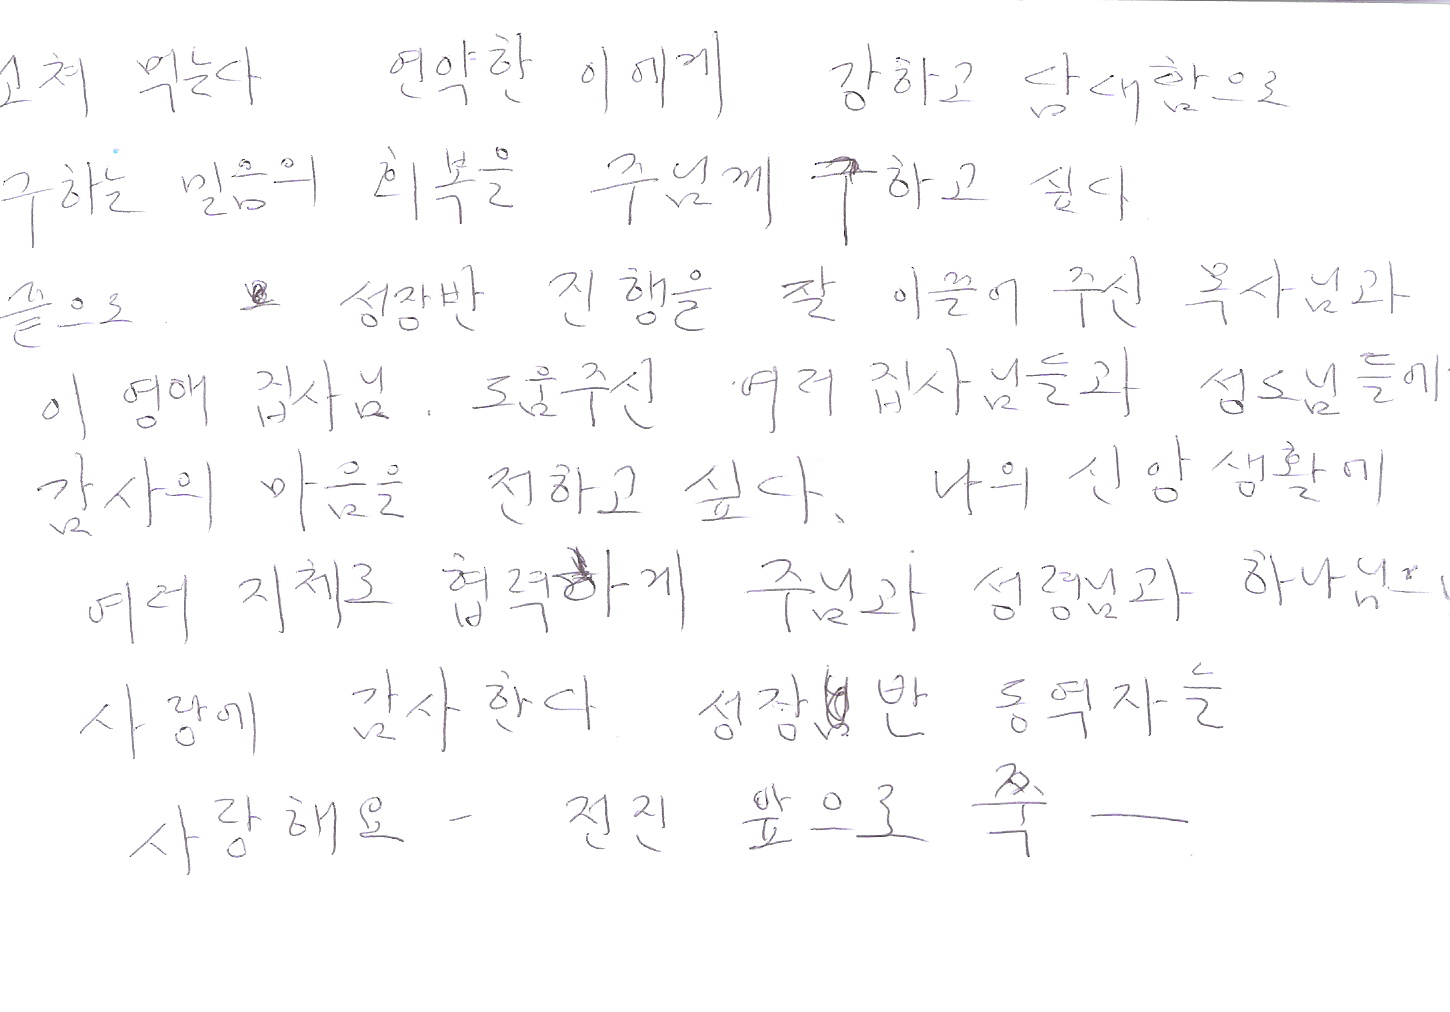 고쳐 먹는다 연약한 이에게 강하고 담대함으로
구하는 믿음의 회복을 주님께 구하고 싶다
끝으로. 성장반 진행을 잘 이끌어 주신 목사님과
이영애 집사님. 도움주신 여러 집사님들과 성도님들에
감사의 마음을 전하고 싶다. 나의 신앙생활에
여러 지체로 협력하게 주님과 성령님과 하나님의
사랑에 감사한다 성장반 동역자들
사랑해요 - 전진 앞으로 쭉 —